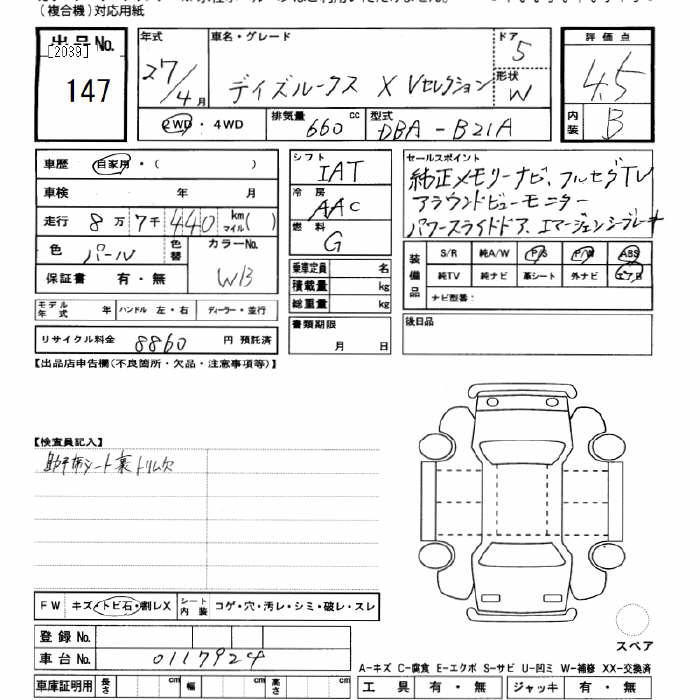 (複合機)対応用紙
出品No.
[2039]
147
年式
27/4月
車名・グレード
デイズルークス X Vセレクション
ドア
5
形状
W
2WD・4WD
排気量
660 cc
型式
DBA-B21A
評価点
4.5
内装
B
車歴 自家用・( )
車検 年 月
走行 8万7千440 km マイル( )
色 パール 色替
カラーNo.
WB
保証書 有・無
モデル年式 年 ハンドル 左・右 ディーラー・並行
リサイクル料金 8860 円 預託済
シフト
IAT
冷房
AAC
燃料
G
乗車定員 名
積載量 kg
総重量 kg
書類期限
月 日
セールスポイント
純正メモリーナビ、フルセグTV
アラウンドビューモニター
パワースライドドア、エマージェンシーブレーキ
装備品
S/R 純A/W P/S P/W ABS
純TV 純ナビ 革シート 外ナビ エアB
ナビ型番:
後日品
【出品店申告欄(不良箇所・欠品・注意事項等)】
【検査員記入】
助手席シート裏トリム欠
FW キズ・トビ石・割レX シート内装 コゲ・穴・汚レ・シミ・破レ・スレ
登録No.
車台No. 0117924
車庫証明用 長さ cm 幅 cm 高さ cm
スペア
A-キズ C-腐食 E-エクボ S-サビ U-凹ミ W-補修 XX-交換済
工具 有・無 ジャッキ 有・無